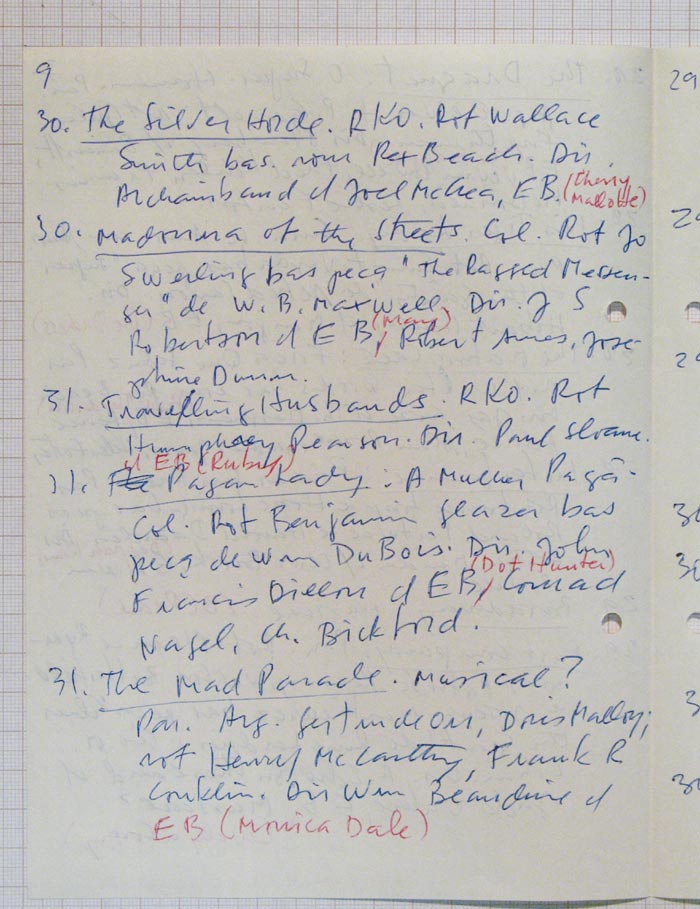 9
30. The Silver Horde. RKO. Rot Wallace
Smith bas. rom Rex Beach. Dir.
Archainbaud c/ Joel McCrea, EB. (Cherry
Mallotte)
30. Madonna of the Streets. Col. Rot Jo
Swerling bas peça "The Ragged Messen-
ger" de W. B. Maxwell. Dir. J S
Robertson c/ EB, (Mary) Robert Ames, Jose-
phine Dunn.
31. Travelling Husbands. RKO. Rot
Humphrey Pearson. Dir. Paul Sloane.
c/ EB (Ruby)
31. Pagan Lady: A Mulher Pagã.
Col. Rot Benjamin Glazer bas
peça de Wm DuBois. Dir. John
Francis Dillon c/ EB, (Dot Hunter) Conrad
Nagel, Ch. Bickford.
31. The Mad Parade. Musical?
Par. Arg. Gertrude Orr, Doris Malloy;
rot Henry McCarthy, Frank R
Conklin. Dir Wm Beaudine c/
EB (Monica Dale)
29
29
29
30
30
30